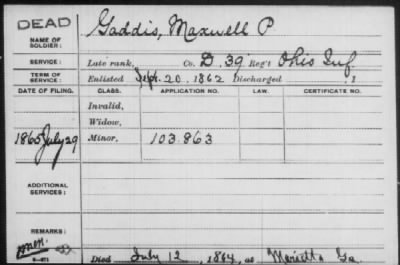 DEAD
NAME OF SOLDIER: Gaddis, Maxwell P
SERVICE: Late rank, Co. D. 39 Reg't Ohio Inf.
TERM OF SERVICE: Enlisted Sept. 20, 1862 Discharged , 1
DATE OF FILING. CLASS. APPLICATION NO. LAW. CERTIFICATE NO.
Invalid,
Widow,
1865 July 29 Minor, 103.863
ADDITIONAL SERVICES:
REMARKS:
Died July 12, 1864, at Marietta Ga